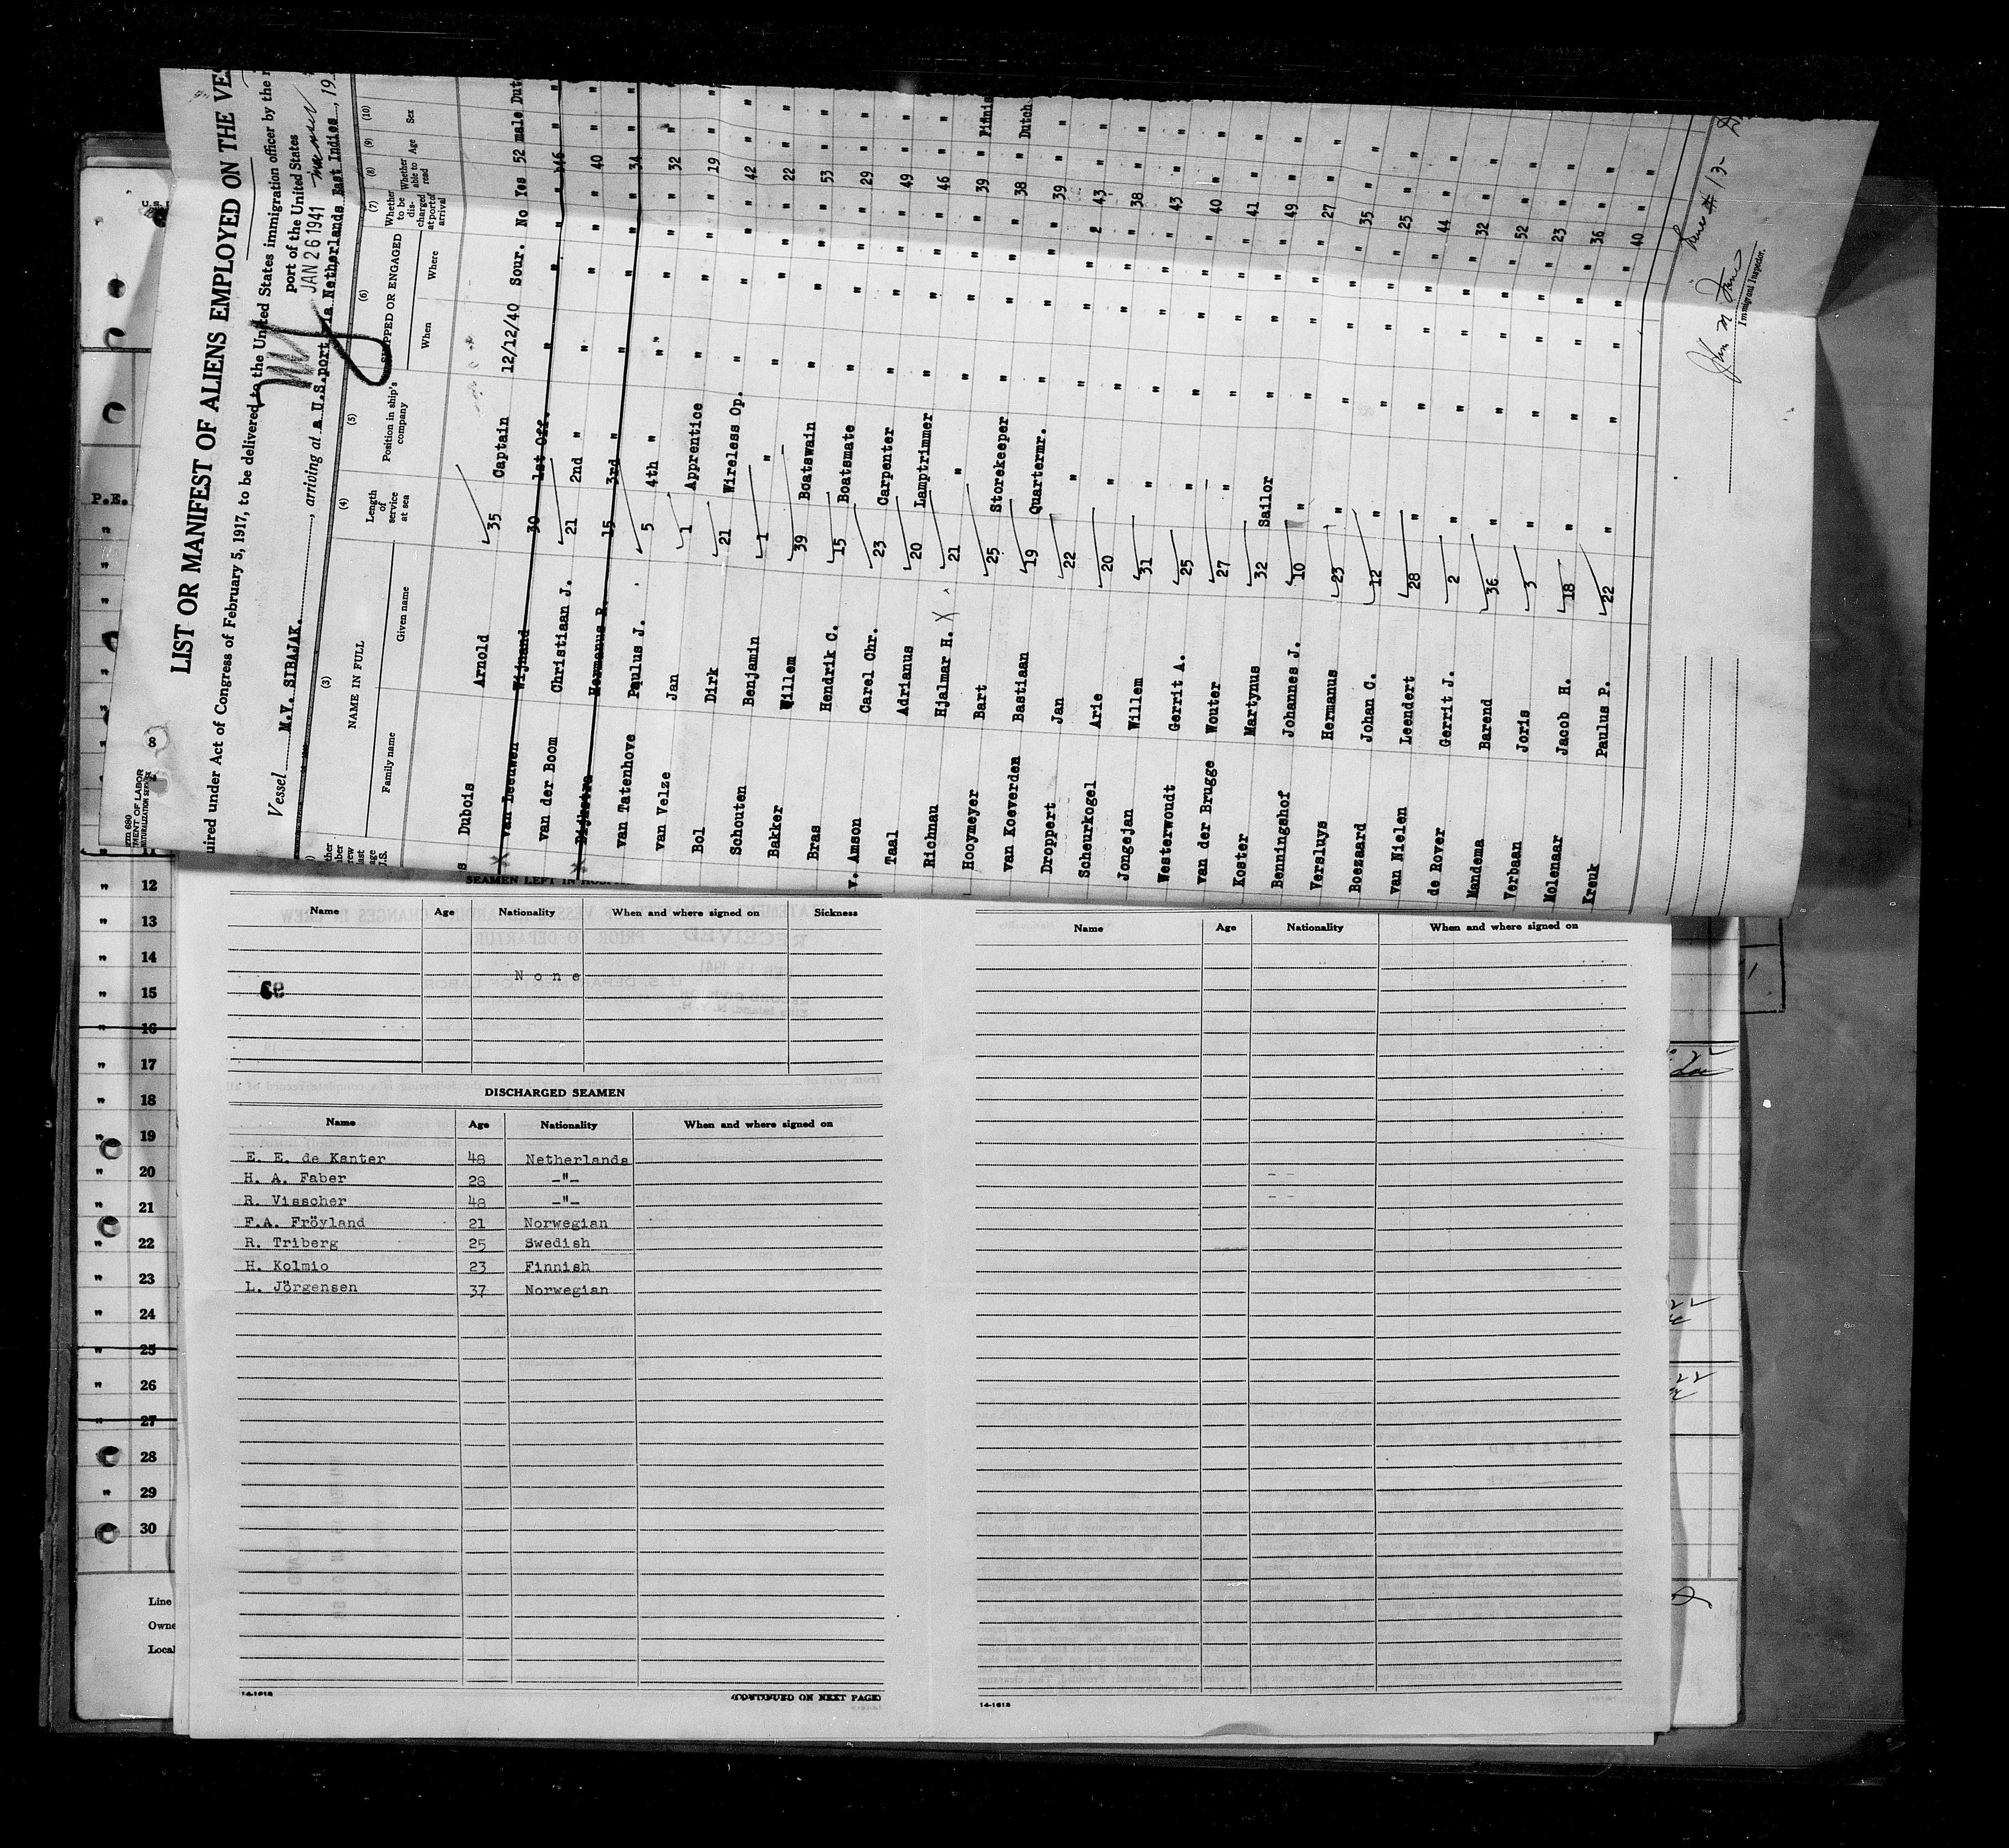 LIST OR MANIFEST OF ALIENS EMPLOYED ON THE VES
uired under Act of Congress of February 5, 1917, to be delivered to the United States immigration officer by the
port of the United States
Vessel M.V. SIBAJAK. , arriving at a U.S.port via Netherlands East Indies , 19
JAN 26 1941
(3) (4) (5) (6) (7) (8) (9) (10)
NAME IN FULL Length of service at sea Position in ship's company SHIPPED OR ENGAGED Whether to be discharged at port of arrival Whether able to read Age Sex
Family name Given name When Where
Dubois Arnold 35 Captain 12/12/40 Sour. No Yes 52 male Dut
van Leeuwen Wijnand 30 1st Off. " " " 46 " "
van der Boom Christiaan J. 21 2nd " " " " " 40 " "
Dijkstra Hermanus R. 15 3rd " " " " " 34 " "
van Tatenhove Paulus J. 5 4th " " " " " 32 " "
van Velze Jan 1 Apprentice " " " " 19 " "
Bol Dirk 21 Wireless Op. " " " " 42 " "
Schouten Benjamin 1 " " " " " 22 " "
Bakker Willem 39 Boatswain " " " " 53 " "
Bras Hendrik C. 15 Boatsmate " " " " 29 " "
v. Amson Carel Chr. 23 Carpenter " " " " 49 " "
Taal Adrianus 20 Lamptrimmer " " " " 46 " "
Richnau Hjalmar H. X 21 " " " " " 39 " Finnis
Hooymeyer Bart 25 Storekeeper " " " " 38 " Dutch
van Koeverden Bastiaan 19 Quartermr. " " " " 39 " "
Droppert Jan 22 " " " " " 43 " "
Scheurkogel Arie 20 " " " " " 38 " "
Jongejan Willem 31 " " " " " 43 " "
Westerwoudt Gerrit A. 25 " " " " " 40 " "
van der Brugge Wouter 27 " " " " " 41 " "
Koster Martynus 32 Sailor " " " " 49 " "
Benningshof Johannes J. 10 " " " " " 27 " "
Versluys Hermanus 23 " " " " " 35 " "
Boezaard Johan C. 12 " " " " " 25 " "
van Nielen Leendert 28 " " " " " 44 " "
de Rover Gerrit J. 2 " " " " " 32 " "
Mandema Barend 36 " " " " " 52 " "
Verbaan Joris 3 " " " " " 23 " "
Molenaar Jacob H. 18 " " " " " 36 " "
Kreuk Paulus P. 22 " " " " " 40 " "
Immigrant Inspector.
P.E.
8
12
13
14
15
16
17
18
19
20
21
22
23
24
25
26
27
28
29
30
Line
Owne
Local
Name Age Nationality When and where signed on Sickness
None
DISCHARGED SEAMEN
Name Age Nationality When and where signed on
E. E. de Kanter 48 Netherlands
H. A. Faber 28 -"-
R. Visscher 48 -"-
F.A. Fröyland 21 Norwegian
R. Triberg 25 Swedish
H. Kolmio 23 Finnish
L. Jörgensen 37 Norwegian
14-1613 (CONTINUED ON NEXT PAGE)
Name Age Nationality When and where signed on
14-1613